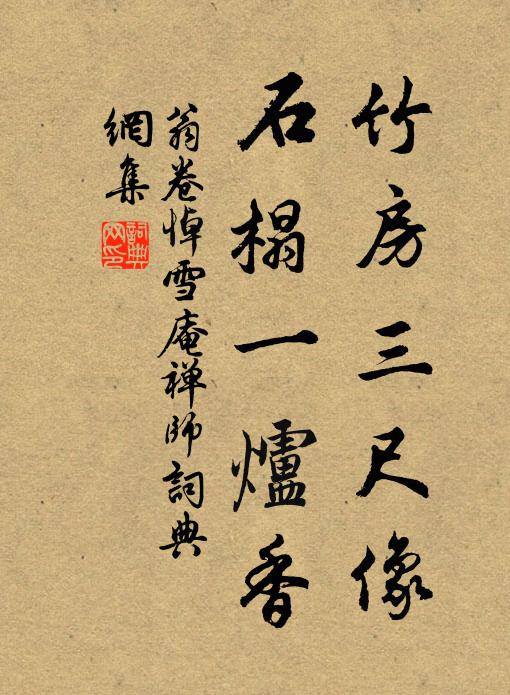 竹房三尺像
石榻一爐香
翁卷悼雪庵禅師詞典
網集
詞典网印